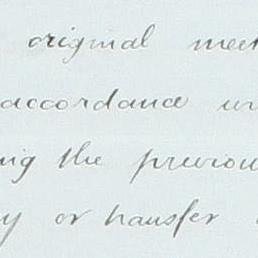 original meet
accordance w
ing the previou
y or transfer